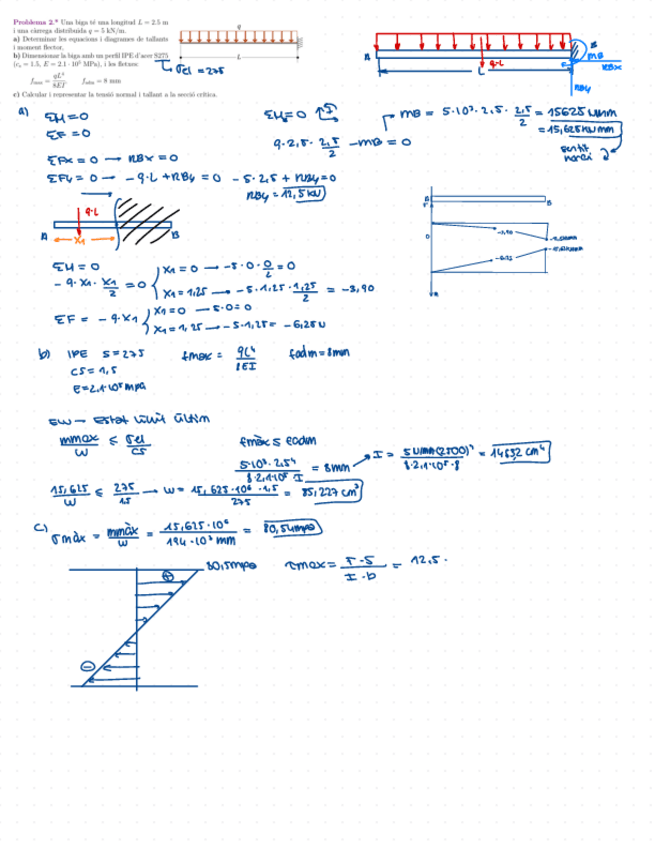 Problema 2.* Una biga té una longitud L = 2.5 m
i una càrrega distribuïda q = 5 kN/m.
a) Determinar les equacions i diagrames de tallants
i moment flector,
b) Dimensionar la biga amb un perfil IPE d'acer S275
(cs = 1.5, E = 2.1 · 10⁵ MPa), i les fletxes:
fmax = qL⁴/8EI  fadm = 8 mm
c) Calcular i representar la tensió normal i tallant a la secció crítica.
q
L
σel = 275
A
q·L
L
B
MB
RBx
RBy
a)
ΣM=0
ΣF=0
ΣFx = 0 → RBx = 0
ΣFy = 0 → -q·L + RBy = 0  -5·2,5 + RBy = 0
RBy = 12,5 kN
ΣM=0
q·2,5·2,5/2 - MB = 0
MB = 5·10³·2,5·2,5/2 = 15625
= 15,625
sentit
horari
q·L
A
X1
B
ΣM=0
-q·X1·X1/2 = 0
X1=0 → -5·0·0/2 = 0
X1=1,25 → -5·1,25·1,25/2 = -3,90
ΣF = -q·X1
X1=0 → -5·0=0
X1=1,25 → -5·1,25 = -6,25
B
0
-3,90
-6,25
b) IPE S=275
CS = 1,5
E=2,1·10⁵ mpa
fmax = qL⁴/8EI
fadm = 8mm
ELU → Estat límit últim
mmax/W ≤ σel/CS
fmàx ≤ fadm
5·10³·2,5⁴/8·2,1·10⁵·I = 8mm
I = /8·2,1·10⁵·8 = 14532 cm⁴
15,625/W ≤ 275/1,5 → W = 15,625·10⁶·1,5/275 = 85,227 cm³
c) σmàx = mmàx/W = 15,625·10⁶/194·10³ mm = 80,54mpa
80,5mpa
τmax = T·S/I·b = 12,5·
+
−